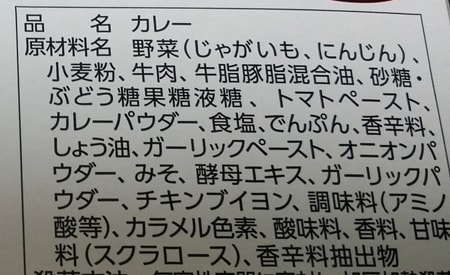 品　名　カレー
原材料名　野菜(じゃがいも、にんじん)、
小麦粉、牛肉、牛脂豚脂混合油、砂糖・
ぶどう糖果糖液糖、トマトペースト、
カレーパウダー、食塩、でんぷん、香辛料、
しょう油、ガーリックペースト、オニオンパ
ウダー、みそ、酵母エキス、ガーリックパ
ウダー、チキンブイヨン、調味料(アミノ
酸等)、カラメル色素、酸味料、香料、甘味
料(スクラロース)、香辛料抽出物